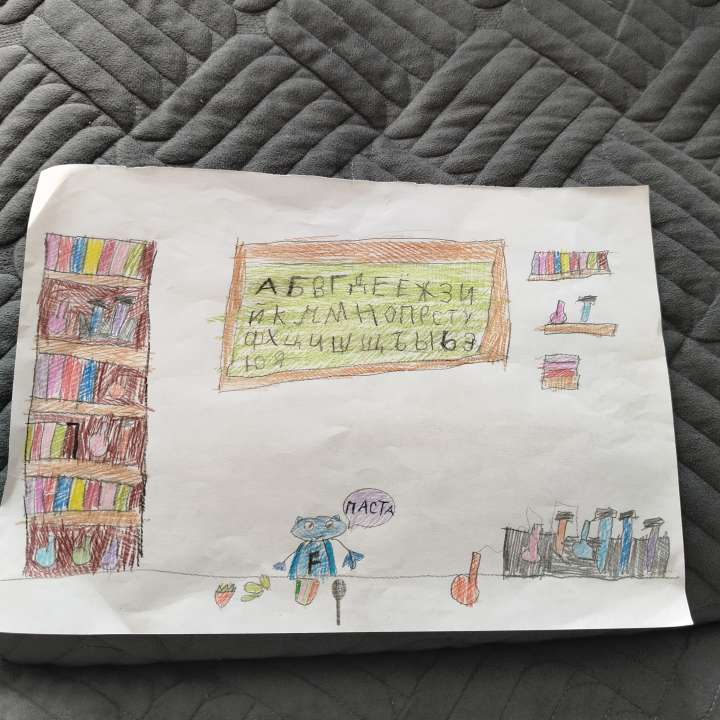 АБВГДЕЁЖЗИ
ЙКЛМНОПРСТУ
ФХЦЧШЩЪЫЬЭ
ЮЯ
ПАСТА
F